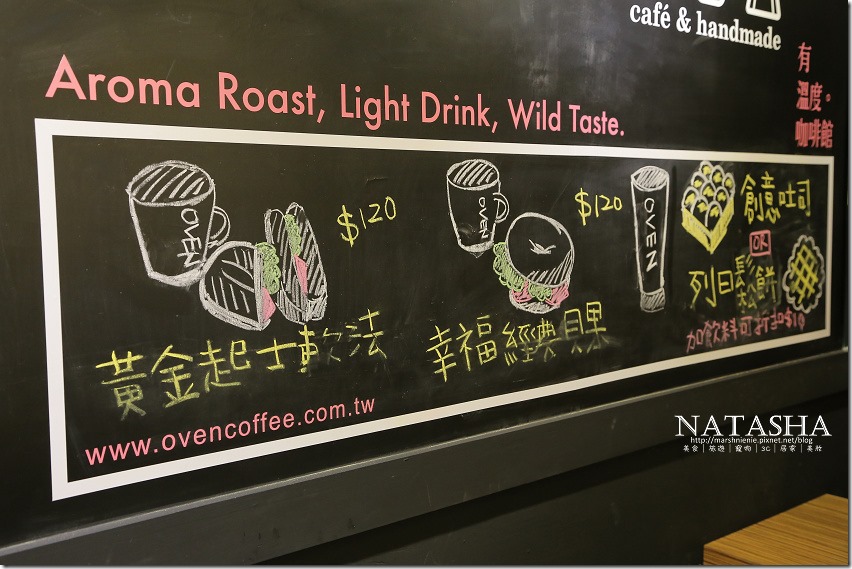 café & handmade
Aroma Roast, Light Drink, Wild Taste.
有
溫度。
咖啡館
OVEN
$120
黃金起士軟法
OVEN
$120
幸福經典貝果
OVEN
創意吐司
OR
列日鬆餅
加飲料可折扣$10
www.ovencoffee.com.tw
NATASHA
http://marshnienie.pixnet.net/blog
美食│旅遊│寵物│3C│居家│美妝